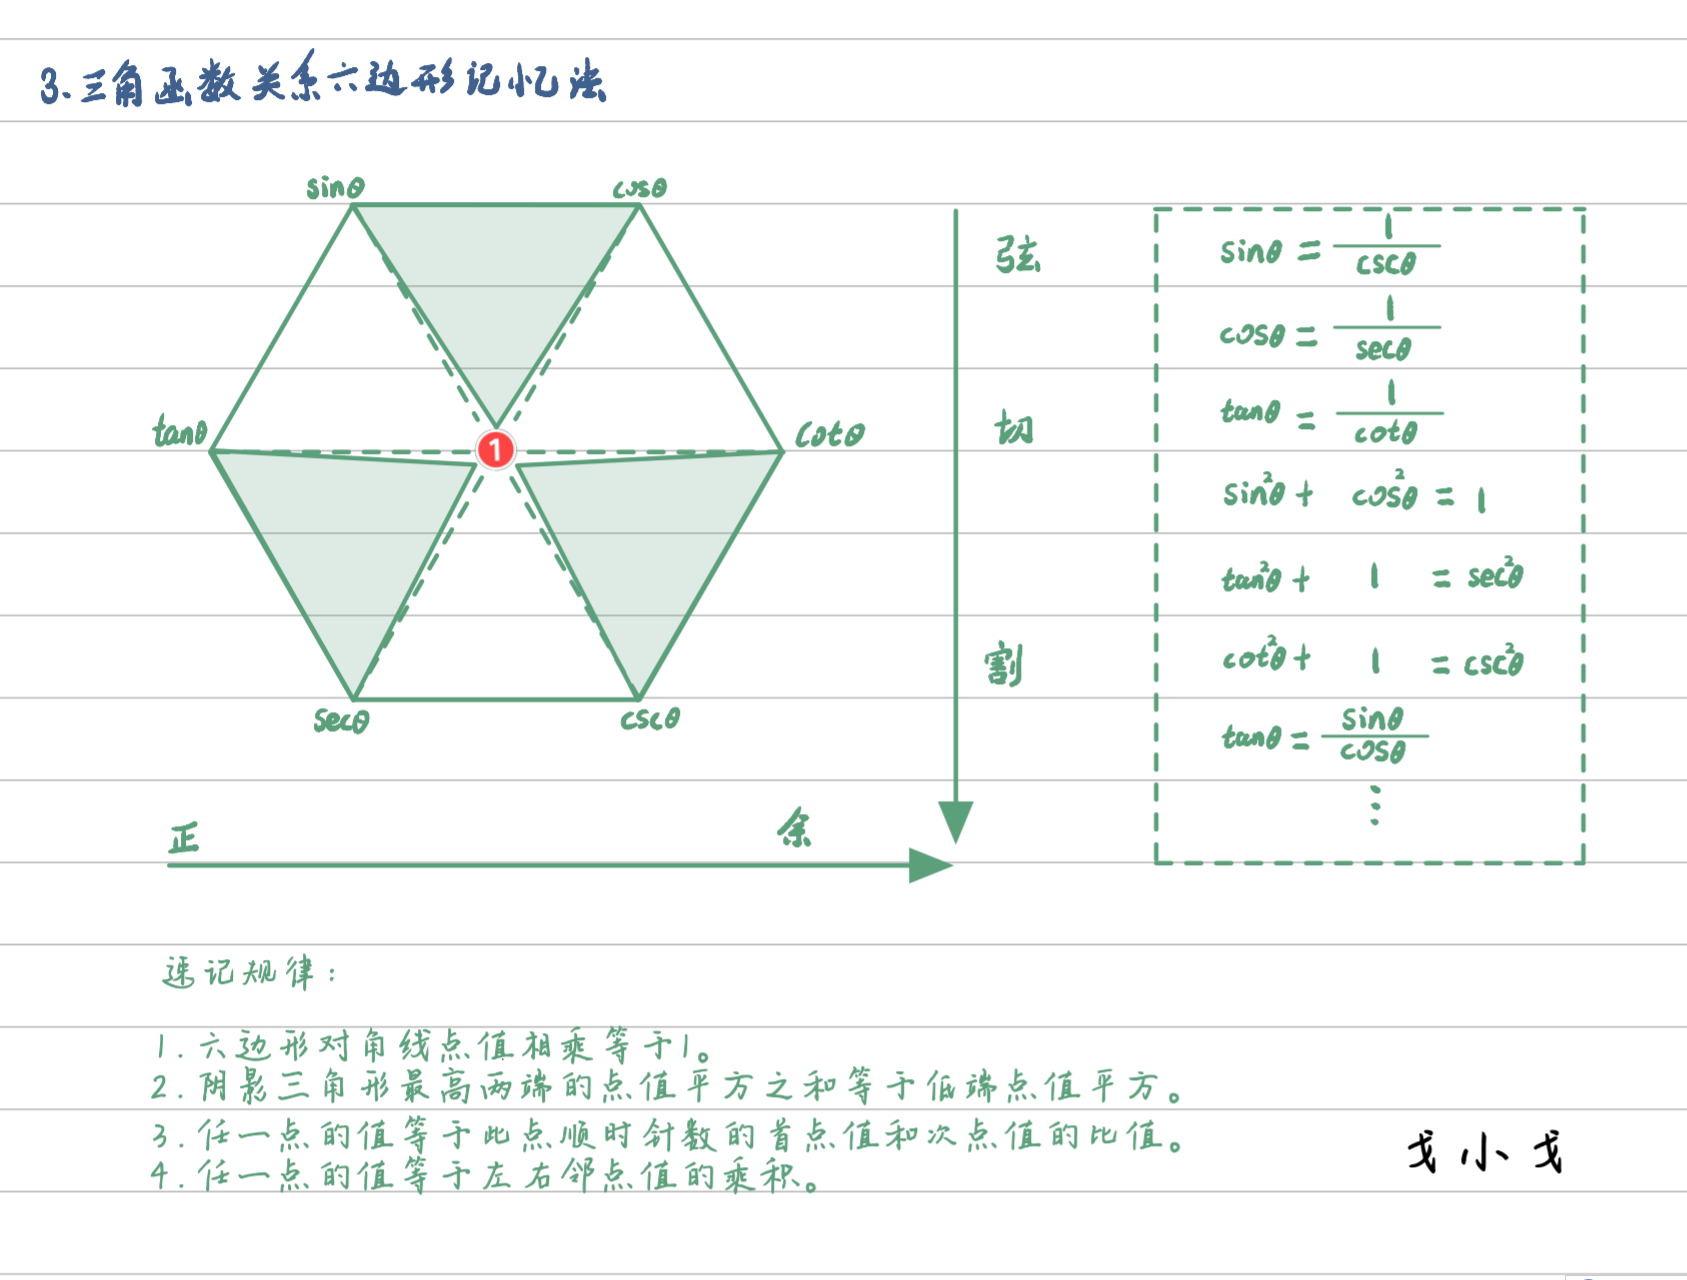 3.三角函数关系六边形记忆法
sinθ cosθ
tanθ 1 cotθ
secθ cscθ
弦
切
割
正 余
sinθ = 1/cscθ
cosθ = 1/secθ
tanθ = 1/cotθ
sin²θ + cos²θ = 1
tan²θ + 1 = sec²θ
cot²θ + 1 = csc²θ
tanθ = sinθ/cosθ
⋮
速记规律:
1.六边形对角线点值相乘等于1。
2.阴影三角形最高两端的点值平方之和等于低端点值平方。
3.任一点的值等于此点顺时针数的首点值和次点值的比值。
4.任一点的值等于左右邻点值的乘积。
戈小戈